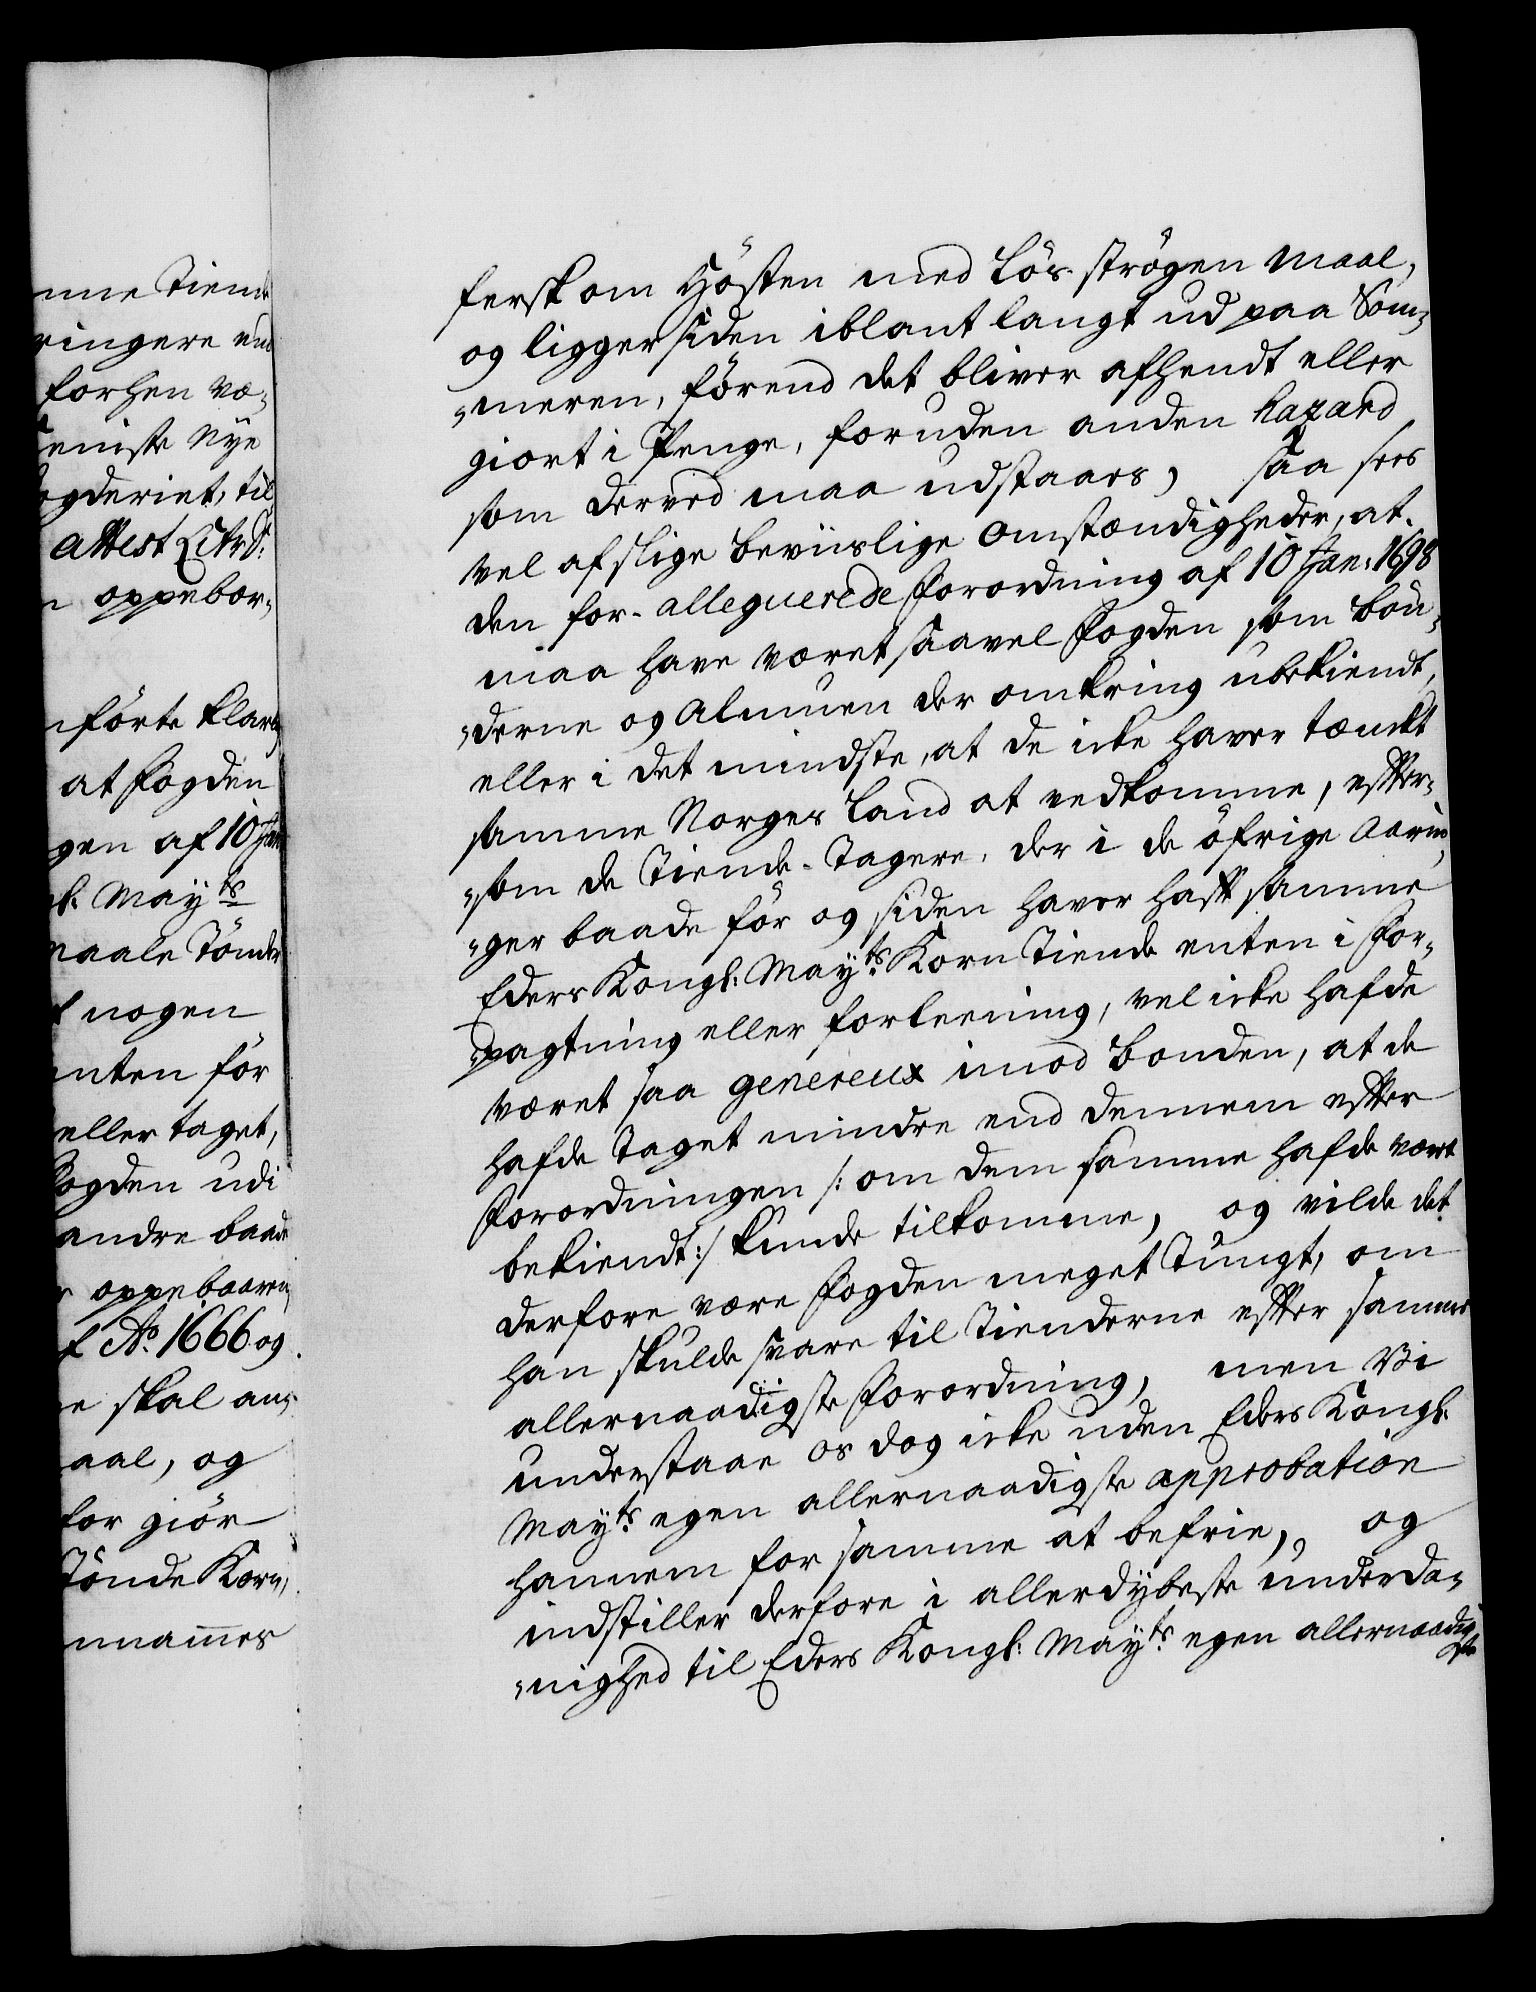 nne Tiende
ringere end
forhen væ-
seniste Nye
ogderiet, til
attest Litr. d:
oppebor-
førte klarlig
at fogden
gen af 10 Jan:
gl: May.ts
maale Tønder
nogen
nten før
eller taget,
fogden udi
andre baade
oppebaaren
Ao. 1666 og
e skal an-
aal, og
for giør
Tønde Korn,
nnammes
fersk om Hösten med Løs-strøgen Maal,
og ligger siden iblant langt ud paa Som-
-meren, førend det bliver afhendt eller
giort i Penge, foruden anden hazard
som derved maa udstaaes, saa sees
vel af slige beviislige Omstændigheder, at
den for-alleguerede forordning af 10 Jan: 1698
maa have været saavel fogden som bøn-
-derne og Almuen der omkring ubekiendt,
eller i det mindste, at de icke haver tænckt
samme Norges Land at vedkomme, efter-
-som de Tiende-Tagere, der i de øfrige aarin-
-ger baade før og siden haver hafft samme
Eders Kongl: May.ts Korn Tiende enten i for-
-pagtning eller forleening, vel icke hafde
været saa genereux imod bonden, at de
hafde taget mindre end dennem efter
forordningen /: om dem samme hafde vært
bekiendt :/ kunde tilkomme, og vilde det
derfore være fogden meget tungt, om
han skulde svare til Tienderne efter samme
allernaadigste forordning, men Vi
understaae os dog icke uden Eders Kongl:
May.ts egen allernaadigste approbation
hannem for samme at befrie, og
indstiller derfore i allerdybeste underda-
-nighed til Eders Kongl: May.ts egen allernaadig-
ste